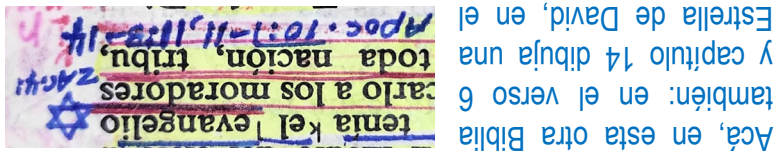 Acá, en esta otra Biblia
también: en el verso 6
y capítulo 14 dibuja una
Estrella de David, en el
tenía el evangelio
carlo a los moradores
toda nación, tribu,
Apoc. 10:7-11,